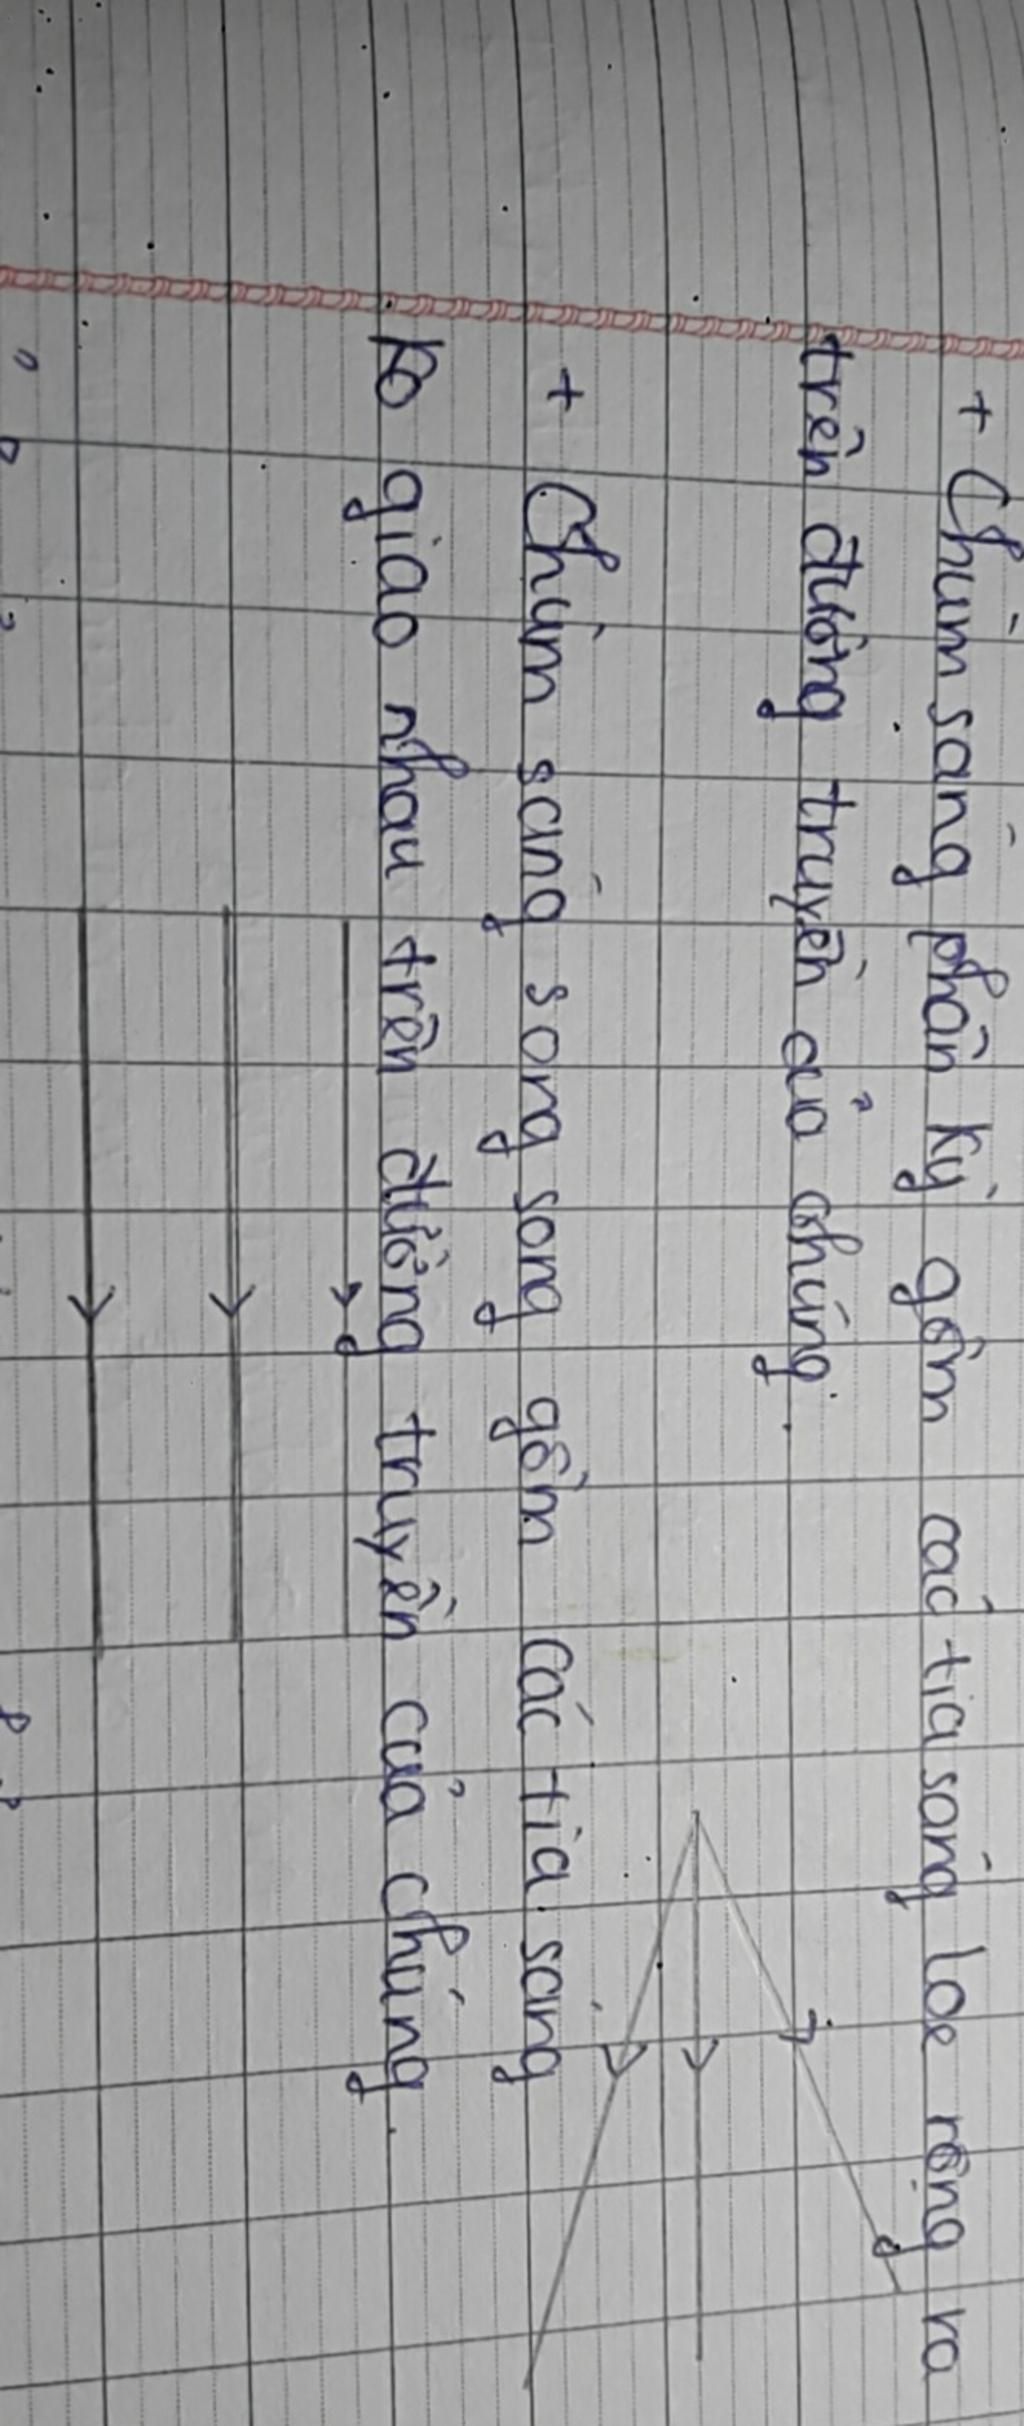 + Chùm sáng phân kỳ gồm các tia sáng loe rộng ra
trên đường truyền của chúng.
+ Chùm sáng song song gồm các tia sáng
ko giao nhau trên đường truyền của chúng.